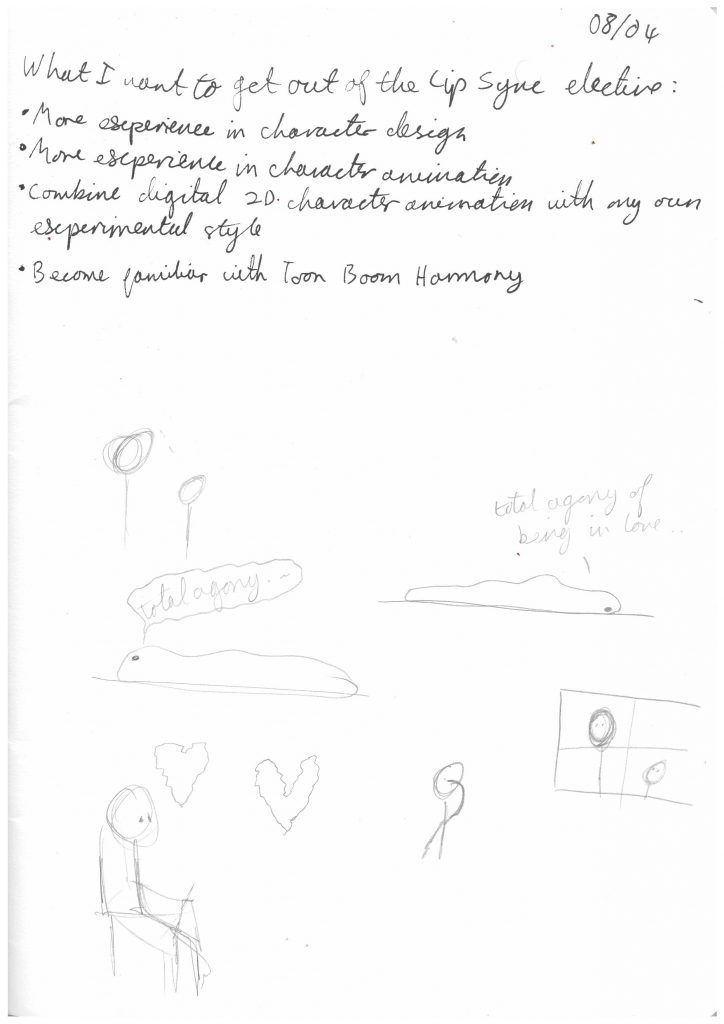 08/04
What I want to get out of the Lip Sync elective:
• More experience in character design
• More experience in character animation
• Combine digital 2D character animation with my own
experimental style
• Become familiar with Toon Boom Harmony
total agony of
being in love..
total agony...